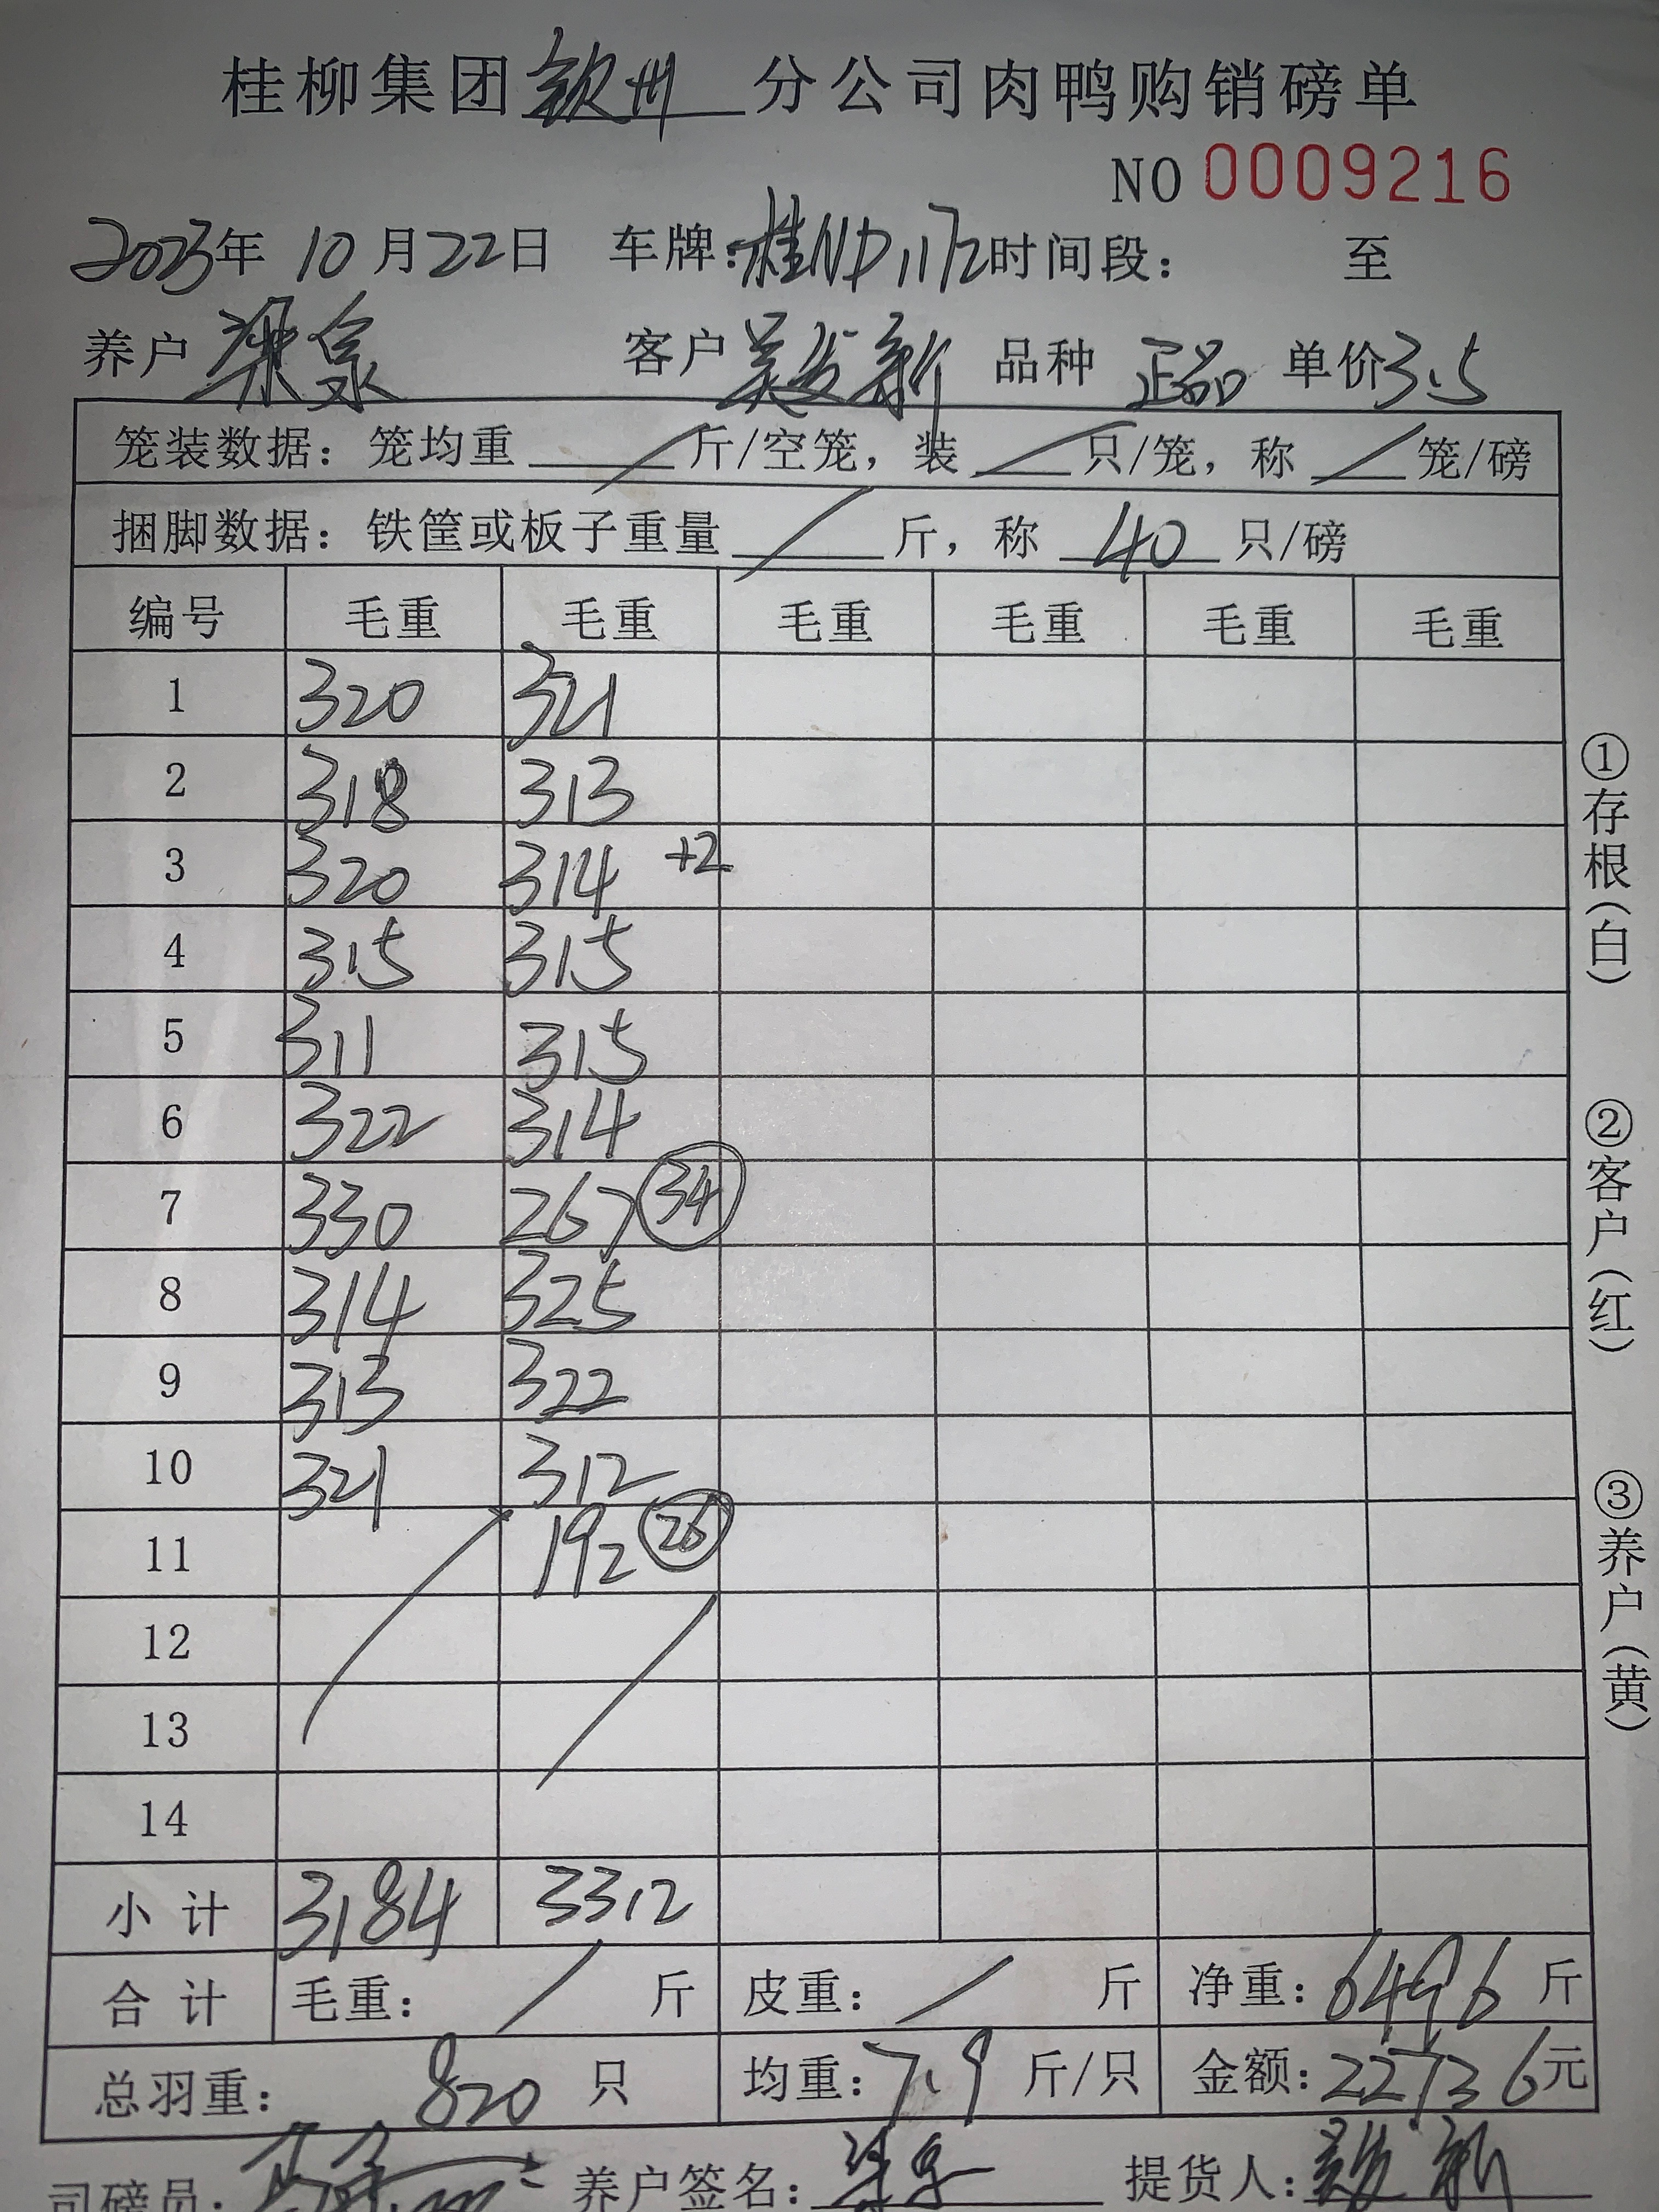 桂柳集团钦州分公司肉鸭购销磅单
NO 0009216
2023年 10月22日 车牌:桂ND1172时间段: 至
养户 梁泉 客户 吴发新 品种 正品 单价3.5
笼装数据: 笼均重 / 斤/空笼, 装 / 只/笼, 称 / 笼/磅
捆脚数据: 铁筐或板子重量 / 斤, 称 40 只/磅
编号 毛重 毛重 毛重 毛重 毛重 毛重
1 320 321
2 318 313
3 320 314 +2
4 315 315
5 311 315
6 322 314
7 330 267 34
8 314 325
9 313 322
10 321 312
11 192 26
12
13
14
小计 3184 3312
合计 毛重: / 斤 皮重: / 斤 净重: 6496 斤
总羽重: 820 只 均重: 7.9 斤/只 金额: 22736元
司磅员: 养户签名: 梁泉 提货人: 吴发新
①存根(白)
②客户(红)
③养户(黄)